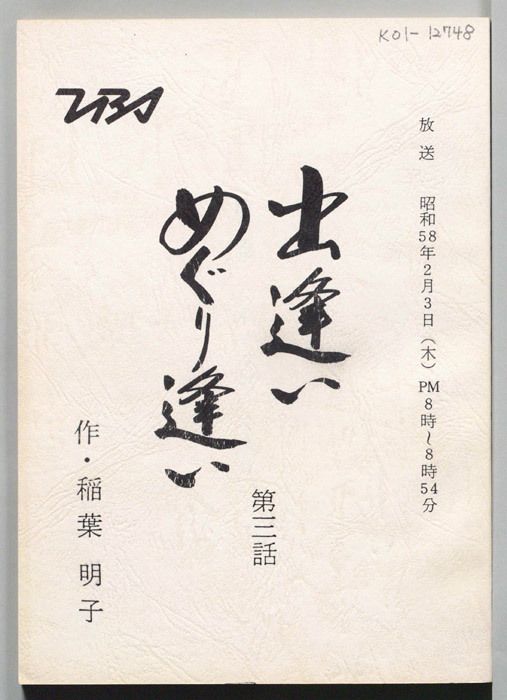 K01-12748
TBS
放送　昭和58年2月3日（木）PM8時～8時54分
出逢い
めぐり逢い
第三話
作・稲葉　明子